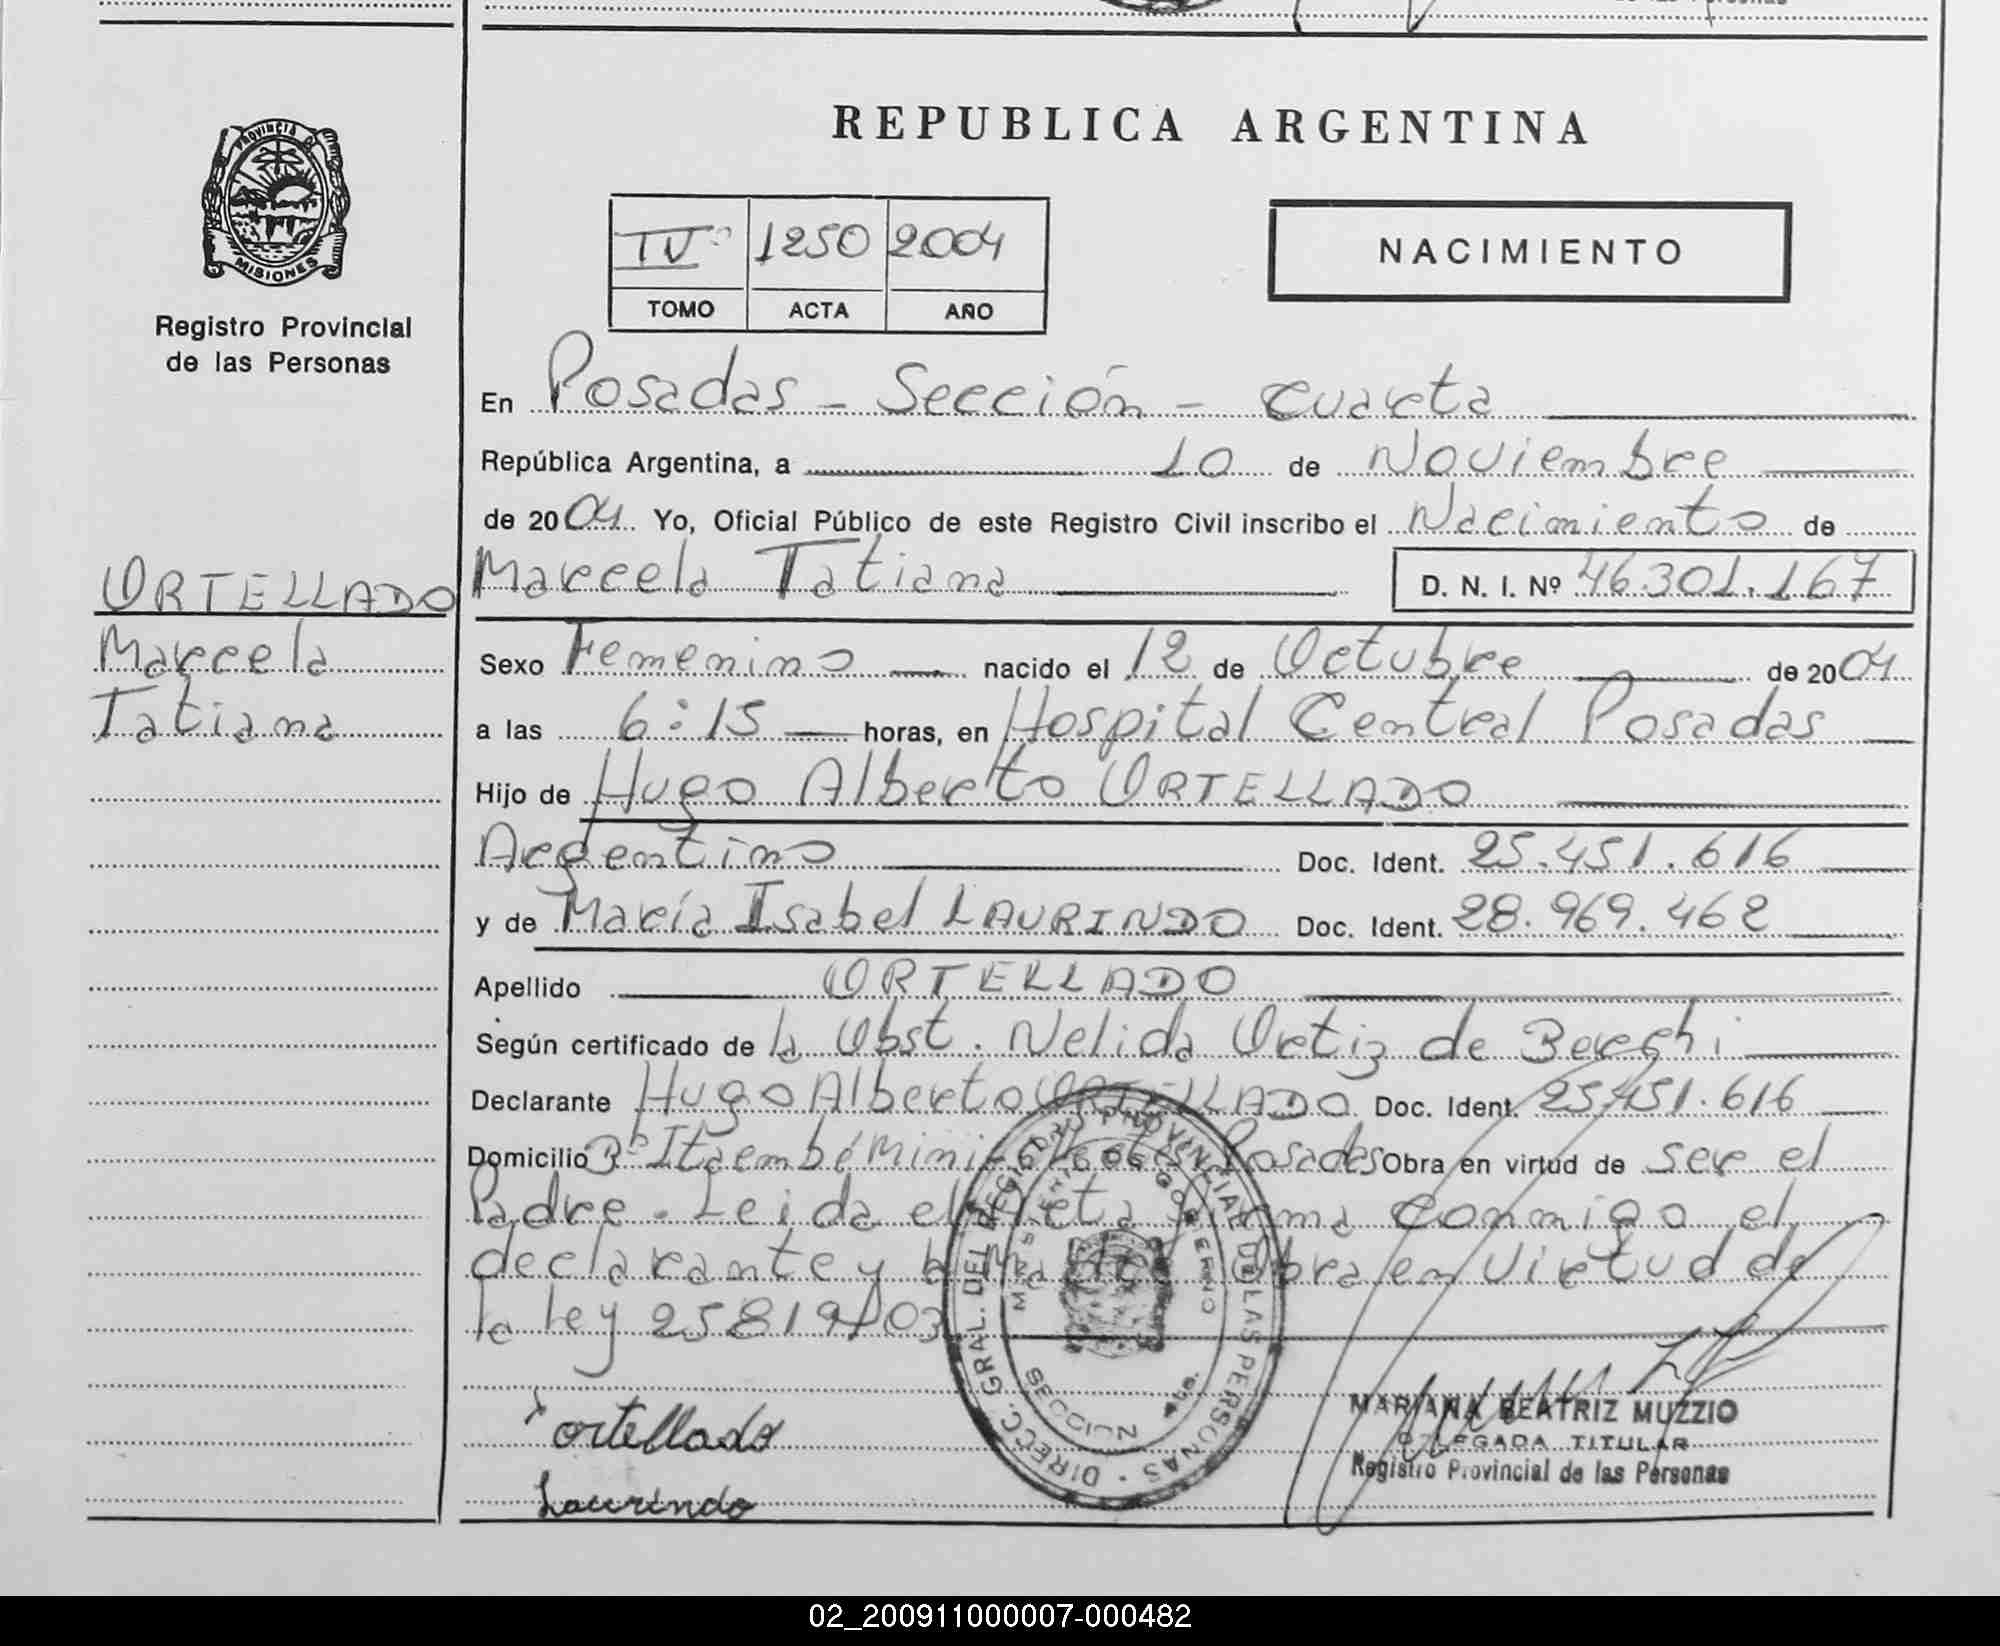 PROVINCIA DE
MISIONES
Registro Provincial
de las Personas
ORTELLADO
Marcela
Tatiana
REPUBLICA ARGENTINA
IVº 1250 2004
TOMO ACTA AÑO
NACIMIENTO
En Posadas - Sección - Cuarta
República Argentina, a 10 de Noviembre
de 2004 Yo, Oficial Público de este Registro Civil inscribo el Nacimiento de
Marcela Tatiana D. N. I. Nº 46.301.167
Sexo Femenino nacido el 12 de Octubre de 2004
a las 6:15 horas, en Hospital Central Posadas
Hijo de Hugo Alberto ORTELLADO
Argentino Doc. Ident. 25.451.616
y de María Isabel LAURINDO Doc. Ident. 28.969.462
Apellido ORTELLADO
Según certificado de la Obst. Nelida Ortiz de Bereghi
Declarante Hugo Alberto ORTELLADO Doc. Ident. 25.451.616
Domicilio Bº Itaembé Mini Posadas Obra en virtud de ser el
Padre. Leida el Acta firma conmigo el
declarante y la Madre Obra en virtud de
la Ley 25819/03
DIRECC. GRAL. DEL REGISTRO PROVINCIAL DE LAS PERSONAS
MINISTERIO DE GOBIERNO
SECCION 4ta.
Ortellado
Laurindo
MARIANA BEATRIZ MUZZIO
DELEGADA TITULAR
Registro Provincial de las Personas
02_200911000007-000482